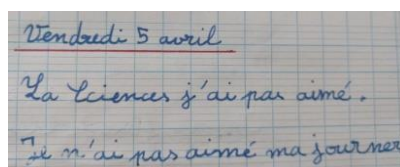 Vendredi 5 avril
La Sciences j'ai pas aimé.
Je n'ai pas aimé ma journer